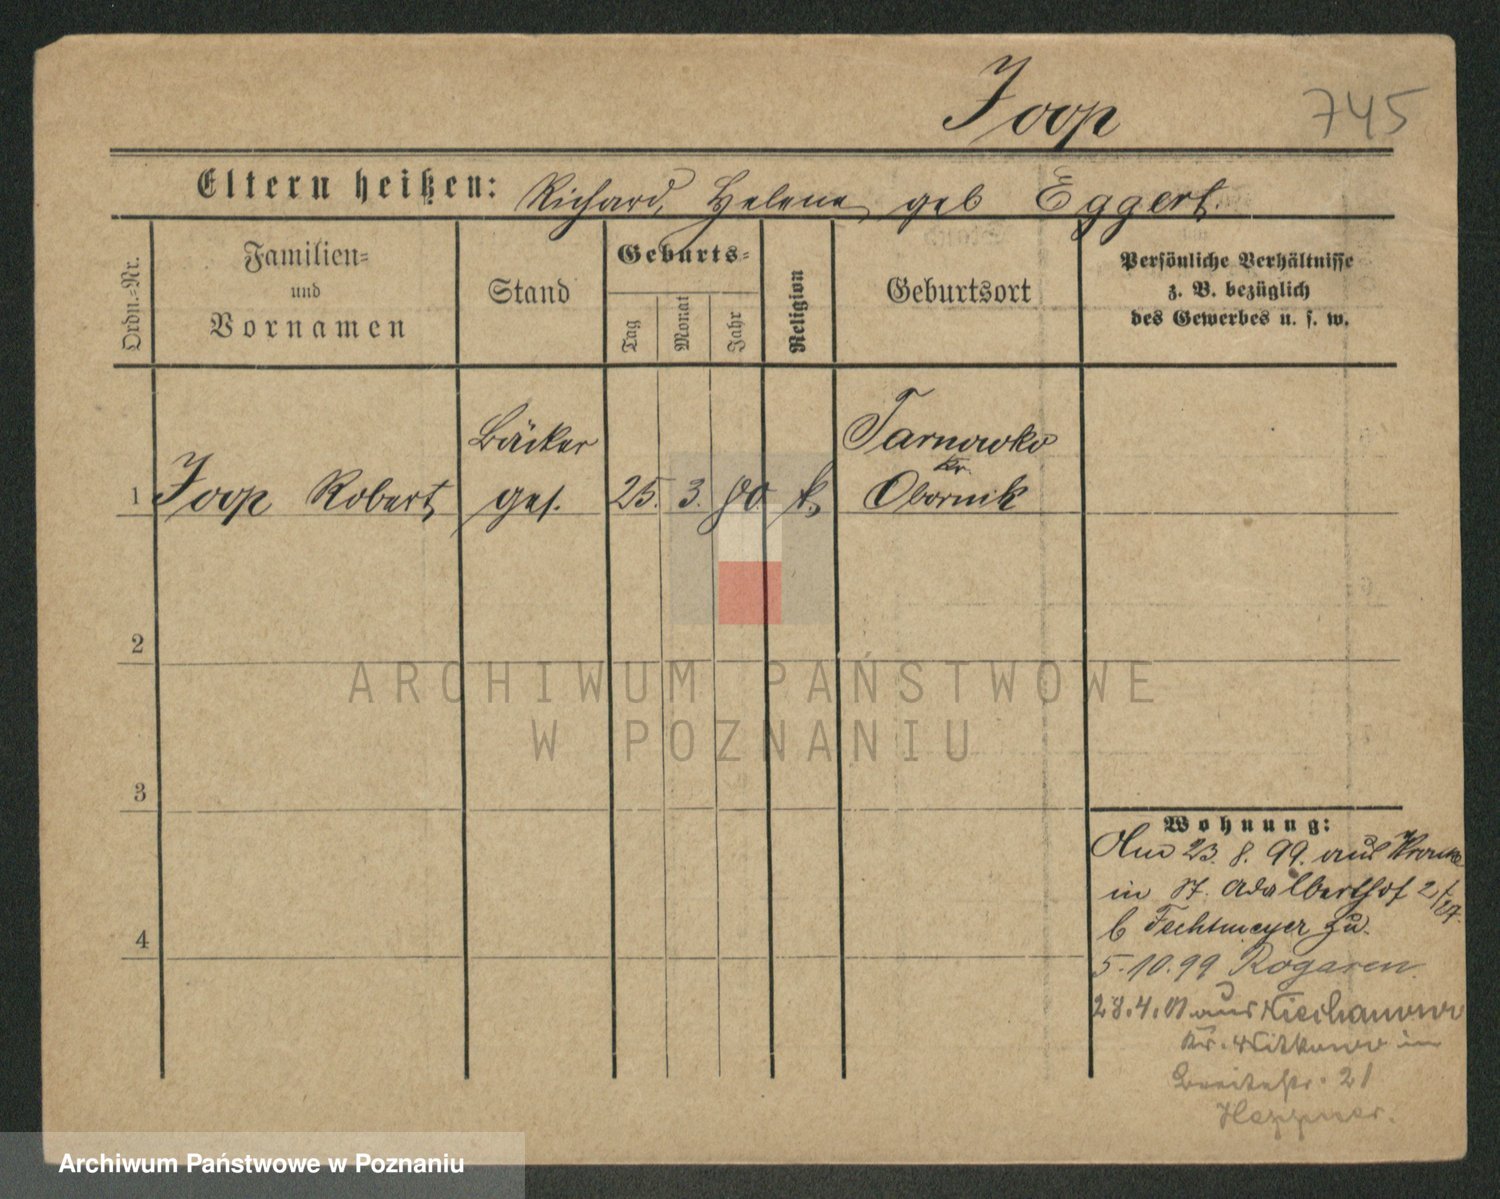 Joop 745
Eltern heißen: Richard, Helene geb Eggert
Ordn.-Nr.
Familien-
und
Vornamen
Stand
Geburts-
Tag
Monat
Jahr
Religion
Geburtsort
Persönliche Verhältnisse
z. B. bezüglich
des Gewerbes u. s. w.
1 Joop Robert
Bäcker
ges.
25. 3. 80. k.
Tarnowko
Kr.
Obornik
2
3
4
Wohnung:
Am 23. 8. 99. aus Wronke
in St. Adalberthof 2/
b Fechtmeyer zu.
5.10.99 Rogasen
28.4.01 aus Niechanowo
Kr. Witkowo in
Breitestr. 21
Heppner.
ARCHIWUM PAŃSTWOWE
W POZNANIU
Archiwum Państwowe w Poznaniu